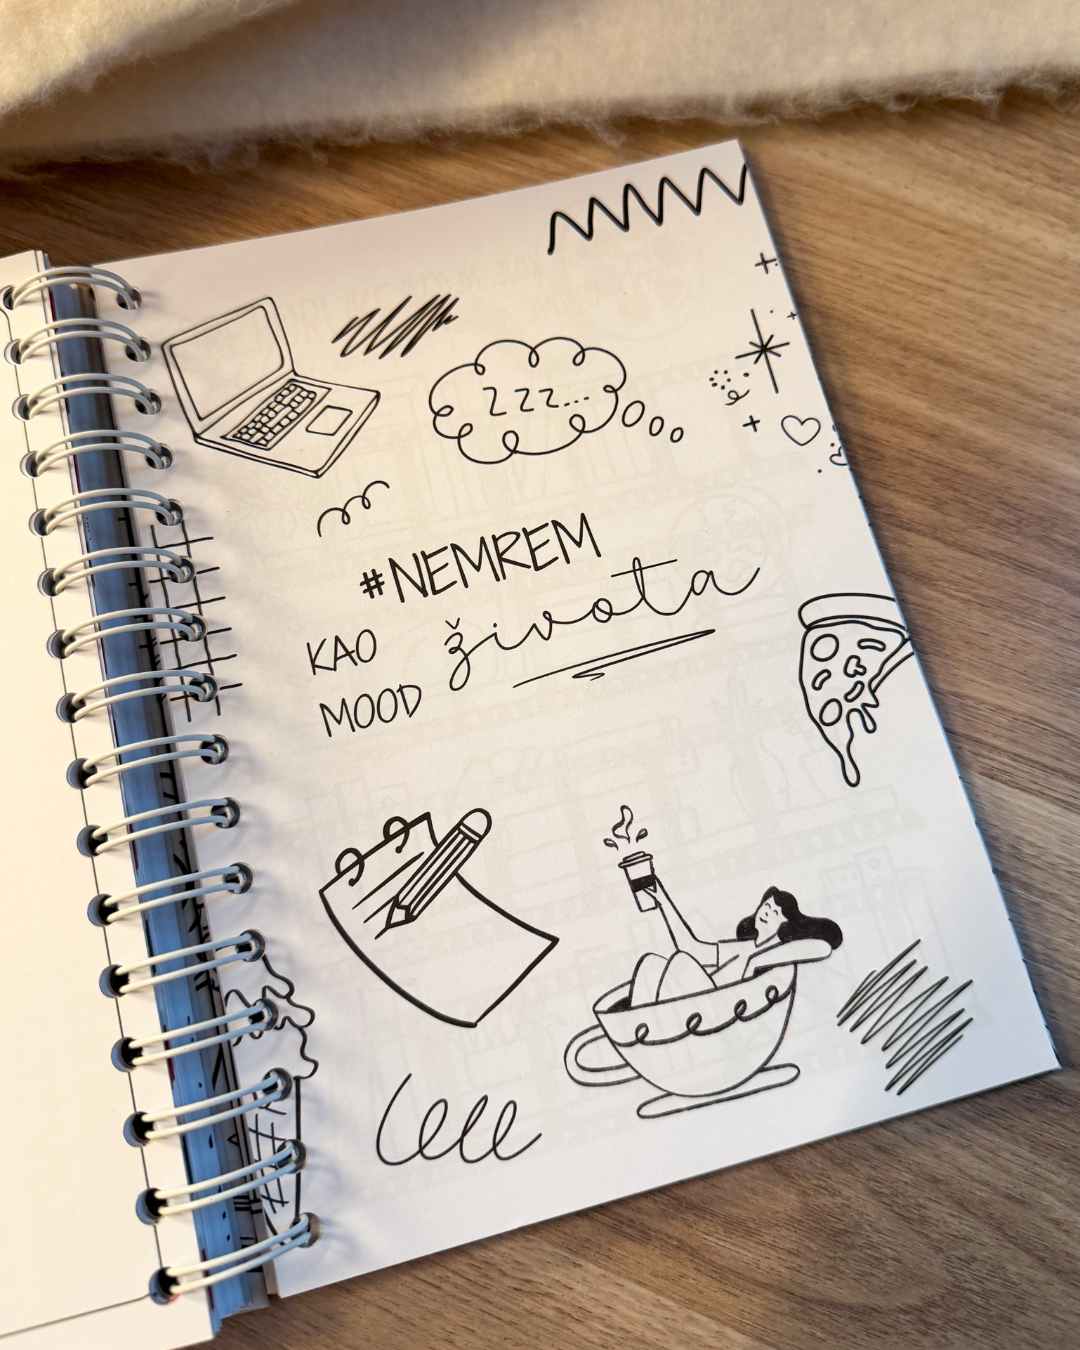 zzz...
#NEMREM
KAO života
MOOD